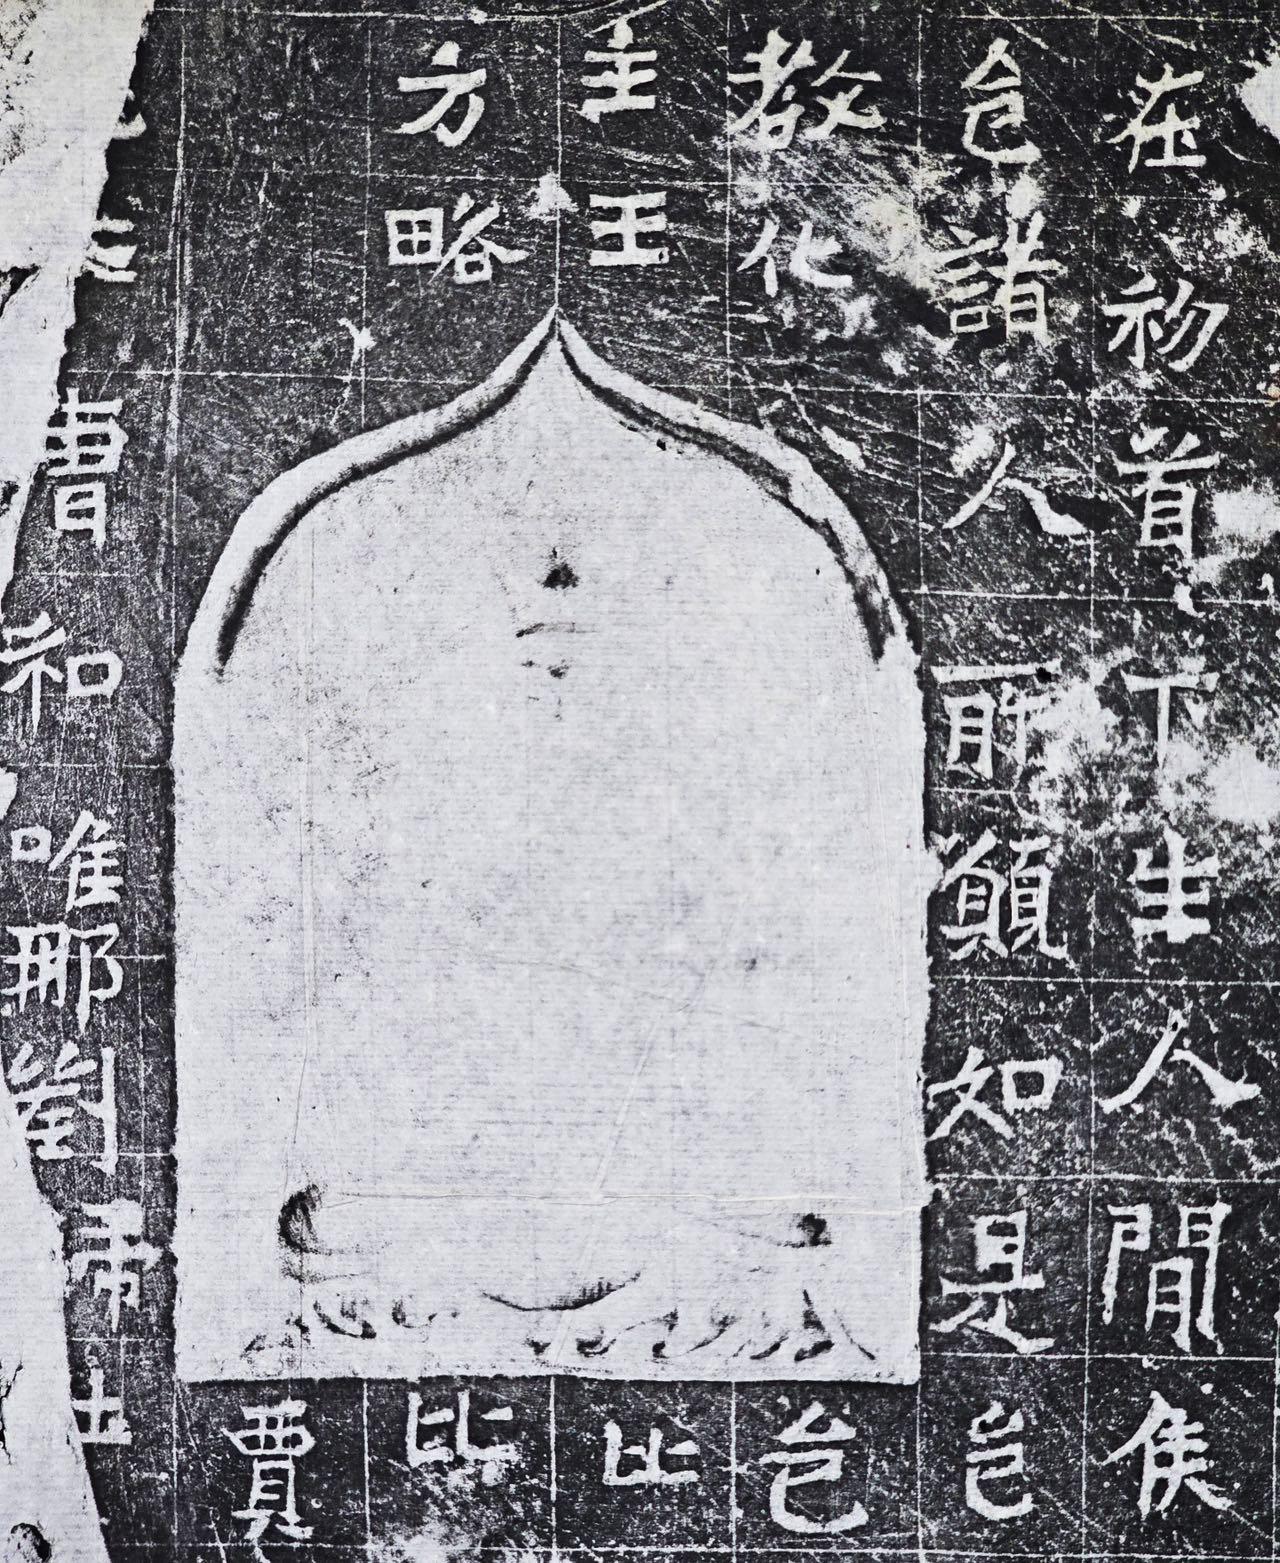 在初首下生人間侯
邑諸人所願如是邑
教化邑
主王比
方略比
賈
曹和唯那劉